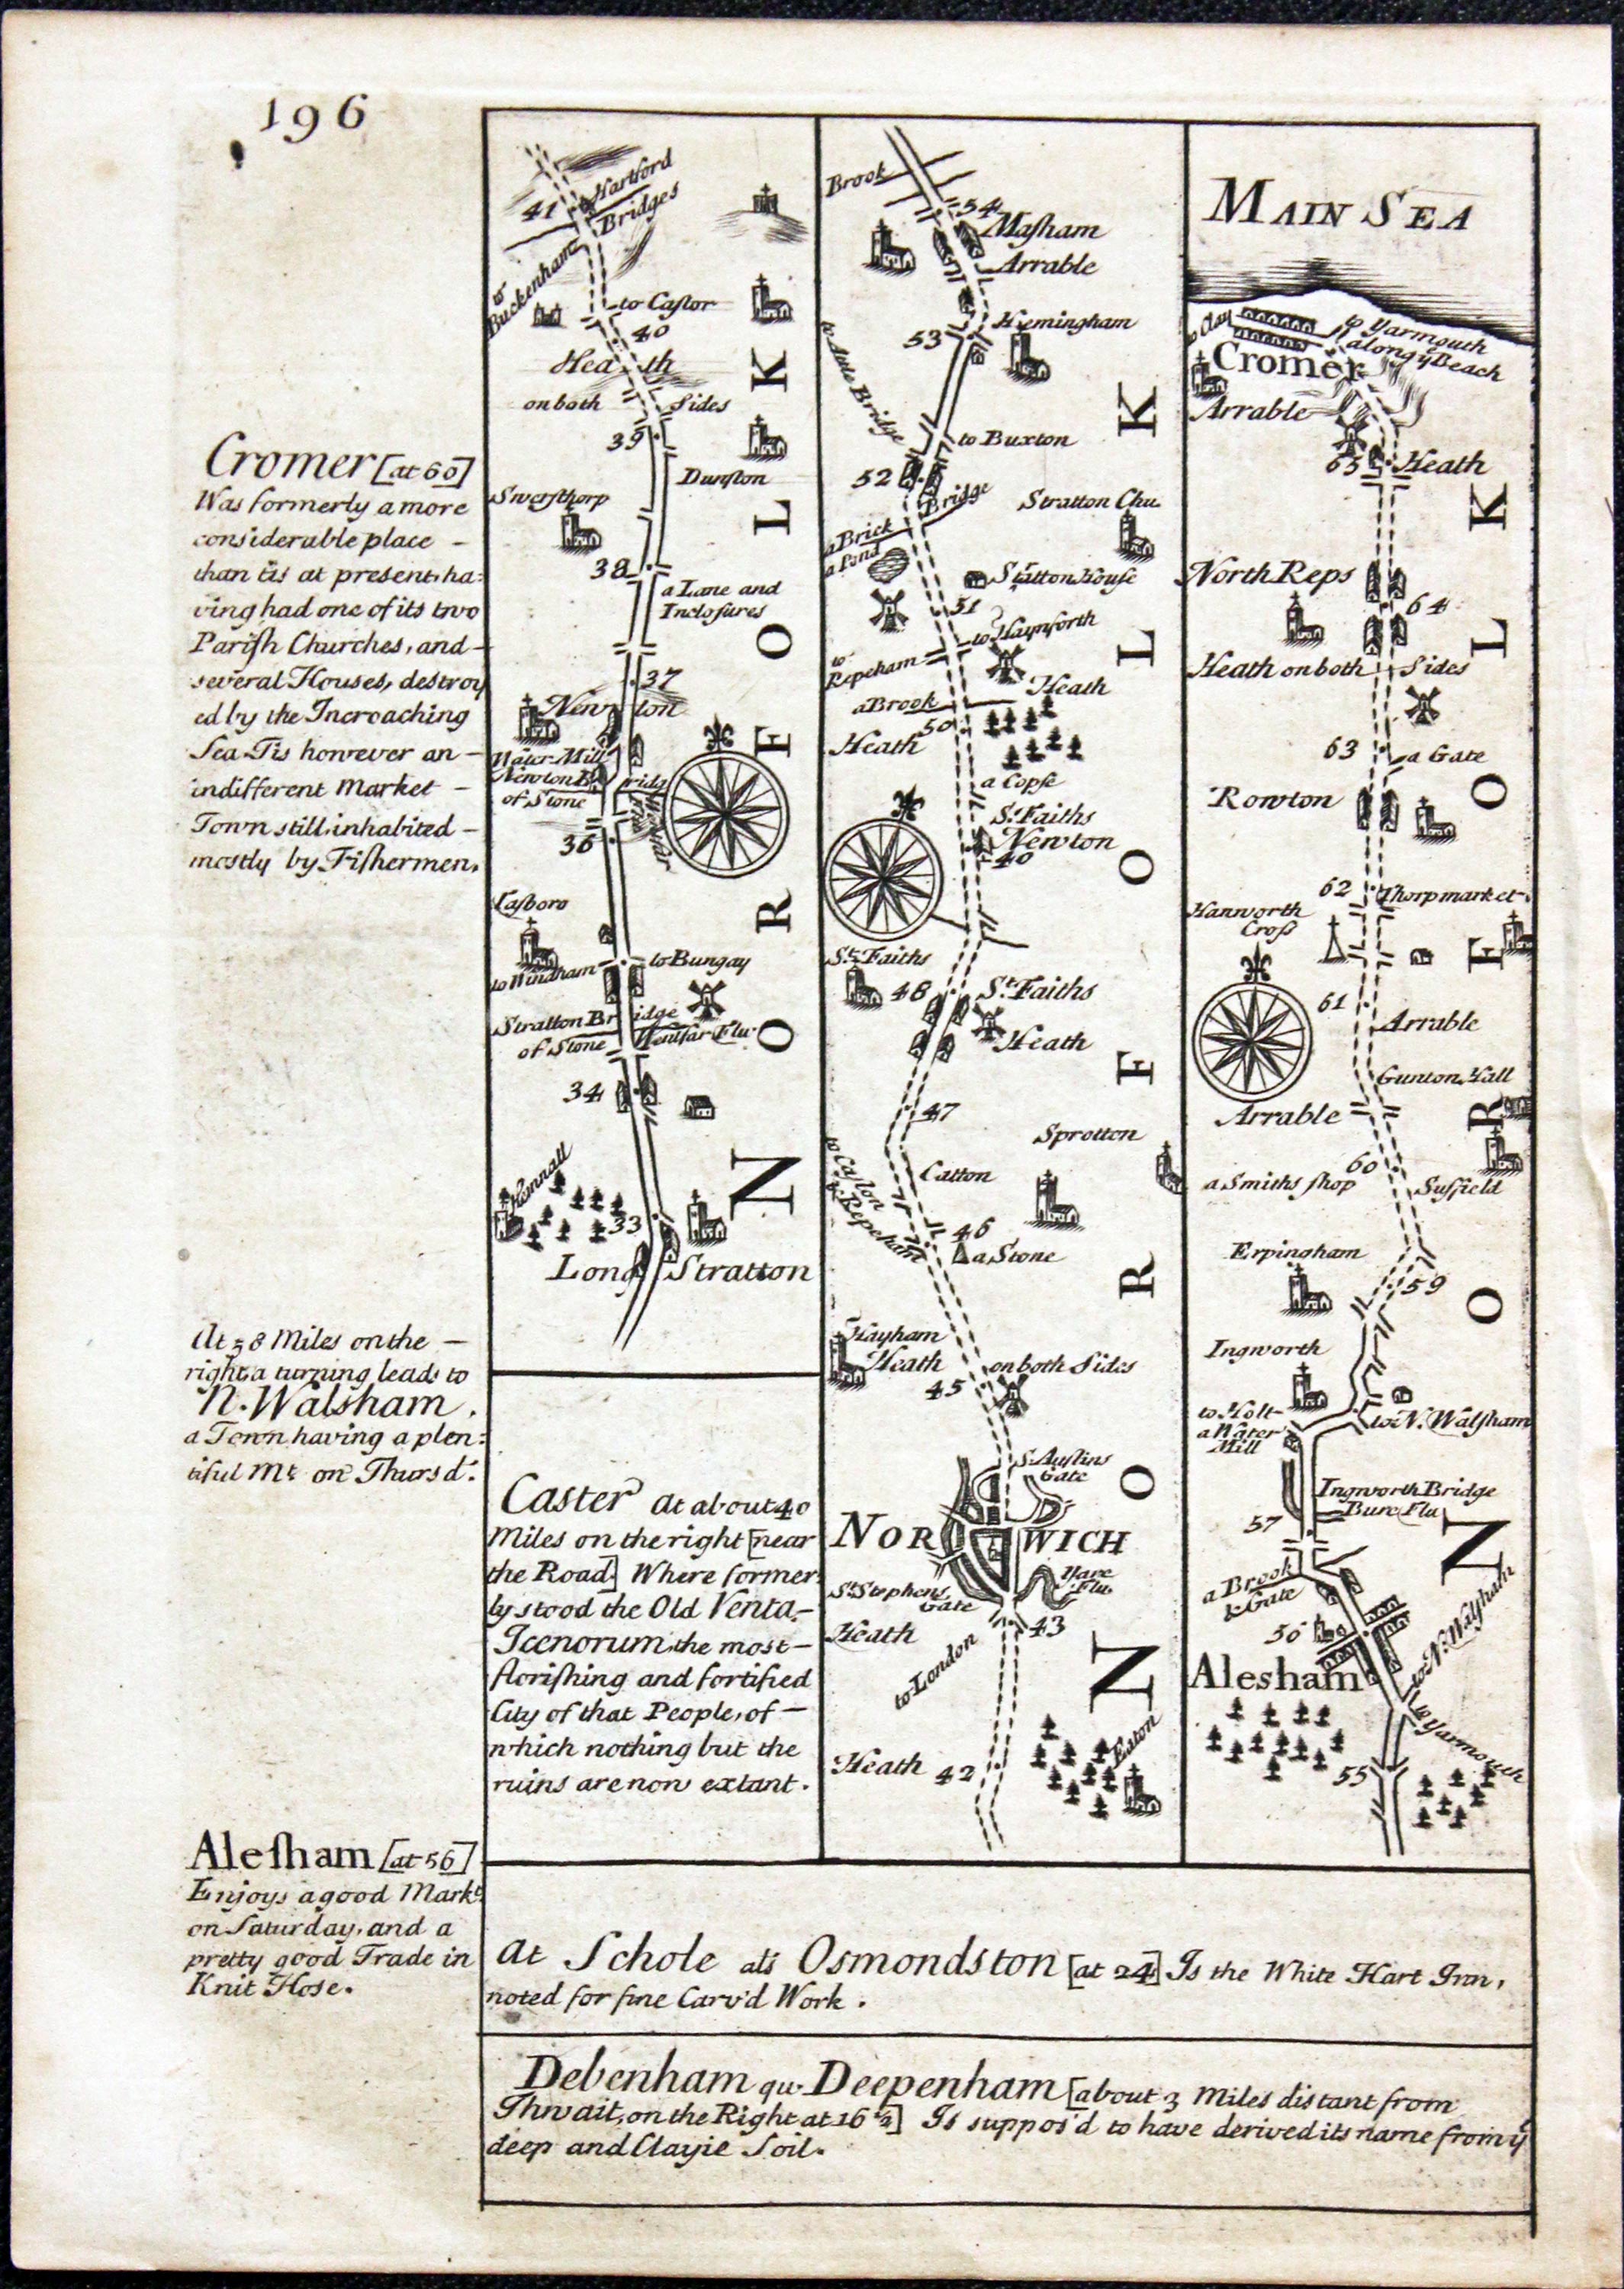 196
Cromer [at 66]
Was formerly a more
considerable place –
than tis at present, ha:
ving had one of its two
Pariſh Churches, and –
several Houses, destroy
ed by the Incroaching
Sea. Tis however an –
indifferent Market –
Town still, inhabited –
mostly by Fiſhermen.
At 58 Miles on the –
right, a turning leads to
N. Walsham.
a Town having a plen:
tiful Mt. on Thursd:
Aleſham [at 56]
Enjoys a good Markt.
on Saturday, and a
pretty good Trade in
Knit Hose.
41
Hartford
Bridges
to Buckenham
to Caſtor
40
Heath
on both Sides
39
Dunſton
Swerſthorp
38
a Lane and
Incloſures
37
Newton
Water-Mill
Newton Bridg
of Stone
36
Taſboro
to Windham
to Bungay
Stratton Bridge
of Stone
34
Hemnall
33
Long Stratton
NORFOLK
Caster At about 40
Miles on the right [near
the Road] Where former:
ly stood the Old Venta –
Icenorum, the most –
floriſhing and fortified
City of that People, of –
which nothing but the
ruins are now extant.
Brook
54
Maſham
Arrable
53
Hemingham
to Buxton
52
a Brick Bridge
a Pond
Stratton Chu.
Stratton Houſe
51
to Haynforth
to
Repeham
a Brook
Heath
50
Heath
a Copſe
St. Faiths
Newton
40
St. Faiths
48
St. Faiths
Heath
47
Sprotton
Catton
to Caſton
& Repeham
46
a Stone
Hayham
Heath on both Sides
45
St. Auſtins
Gate
NORWICH
St. Stephens
Gate
Yare
Flu.
43
Heath
to London
Heath
42
Eaton
NORFOLK
MAIN SEA
to Clay
to Yarmouth
along ye Beach
Cromer
Arrable
65
Heath
North Reps
64
Heath on both Sides
63
a Gate
Rowton
62
Thorpmarket
Hanworth
Croſs
61
Arrable
Gunton Hall
Arrable
60
a Smiths ſhop
Suffield
Erpingham
59
Ingworth
to Holt
a Water
Mill
to N. Walſham
Ingworth Bridge
Bure Flu
57
a Brook
& Gate
56
Alesham
to N. Walſham
to Yarmouth
55
NORFOLK
At Schole als Osmondston [at 24] Is the White Hart Inn,
noted for fine Carv'd Work.
Debenham qu. Deepenham [about 3 Miles distant from
Thwait, on the Right at 16 ½] Is suppos'd to have derived its name from ye
deep and Clayie Soil.